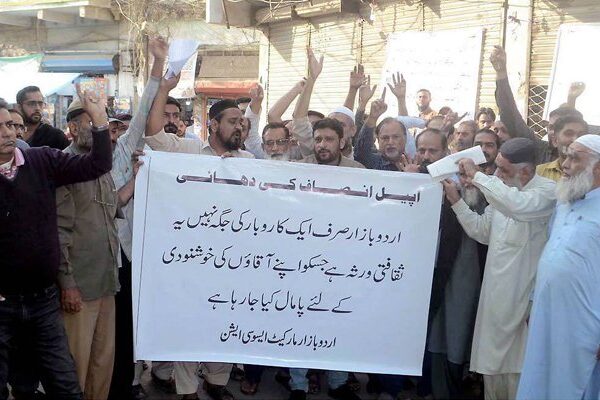 اپیل انصاف کی دھائی
اردو بازار صرف ایک کاروبار کی جگہ نہیں یہ
ثقافتی ورثہ ہے جسکو اپنے آقاؤں کی خوشنودی
کے لئے پامال کیا جا رہا ہے
اردو بازار مارکیٹ ایسوسی ایشن